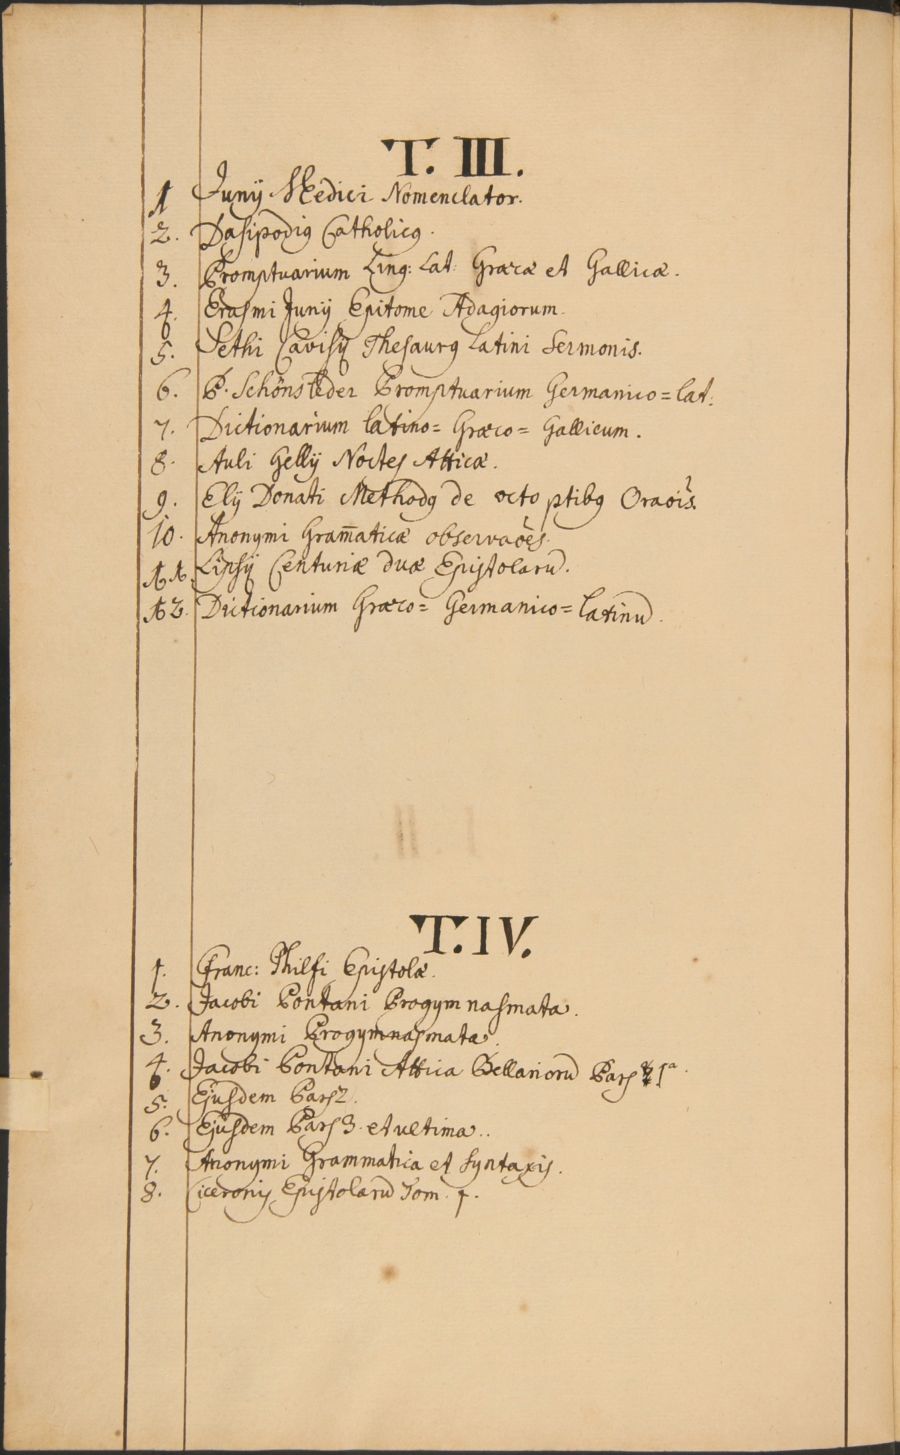 T. III.
1 Junÿ Medici Nomenclator.
2. Dasipodiꝰ Catholicꝰ.
3. Promptuarium Ling: Lat: Græcæ et Gallicæ.
4. Erasmi Junÿ Epitome Adagiorum.
5. Sethi Cavisÿ Thesaurꝰ Latini Sermonis.
6. P. Schönsleder Promptuarium Germanico= lat:
7. Dictionarium latino= Græco= Gallicum.
8. Auli Gellÿ Noctes Atticæ.
9. Elÿ Donati Methodꝰ de octo ptibꝰ Oraõis.
10. Anonymi Gram̄aticæ observaões.
11. Lipsÿ Centuriæ duæ Epistolarū.
12. Dictionarium Græco= Germanico= Latinū.
T. IV.
1. Franc: Philfi Epistolæ.
2. Jacobi Pontani Progymnasmata.
3. Anonymi Progymnasmata.
4. Jacobi Pontani Attica Bellariorū Pars 1ª.
5. Ejusdem Pars 2.
6. Ejusdem Pars 3. et ultima..
7. Anonymi Grammatica et Syntaxis.
8. Ciceronis Epistolarū Tom. 1.